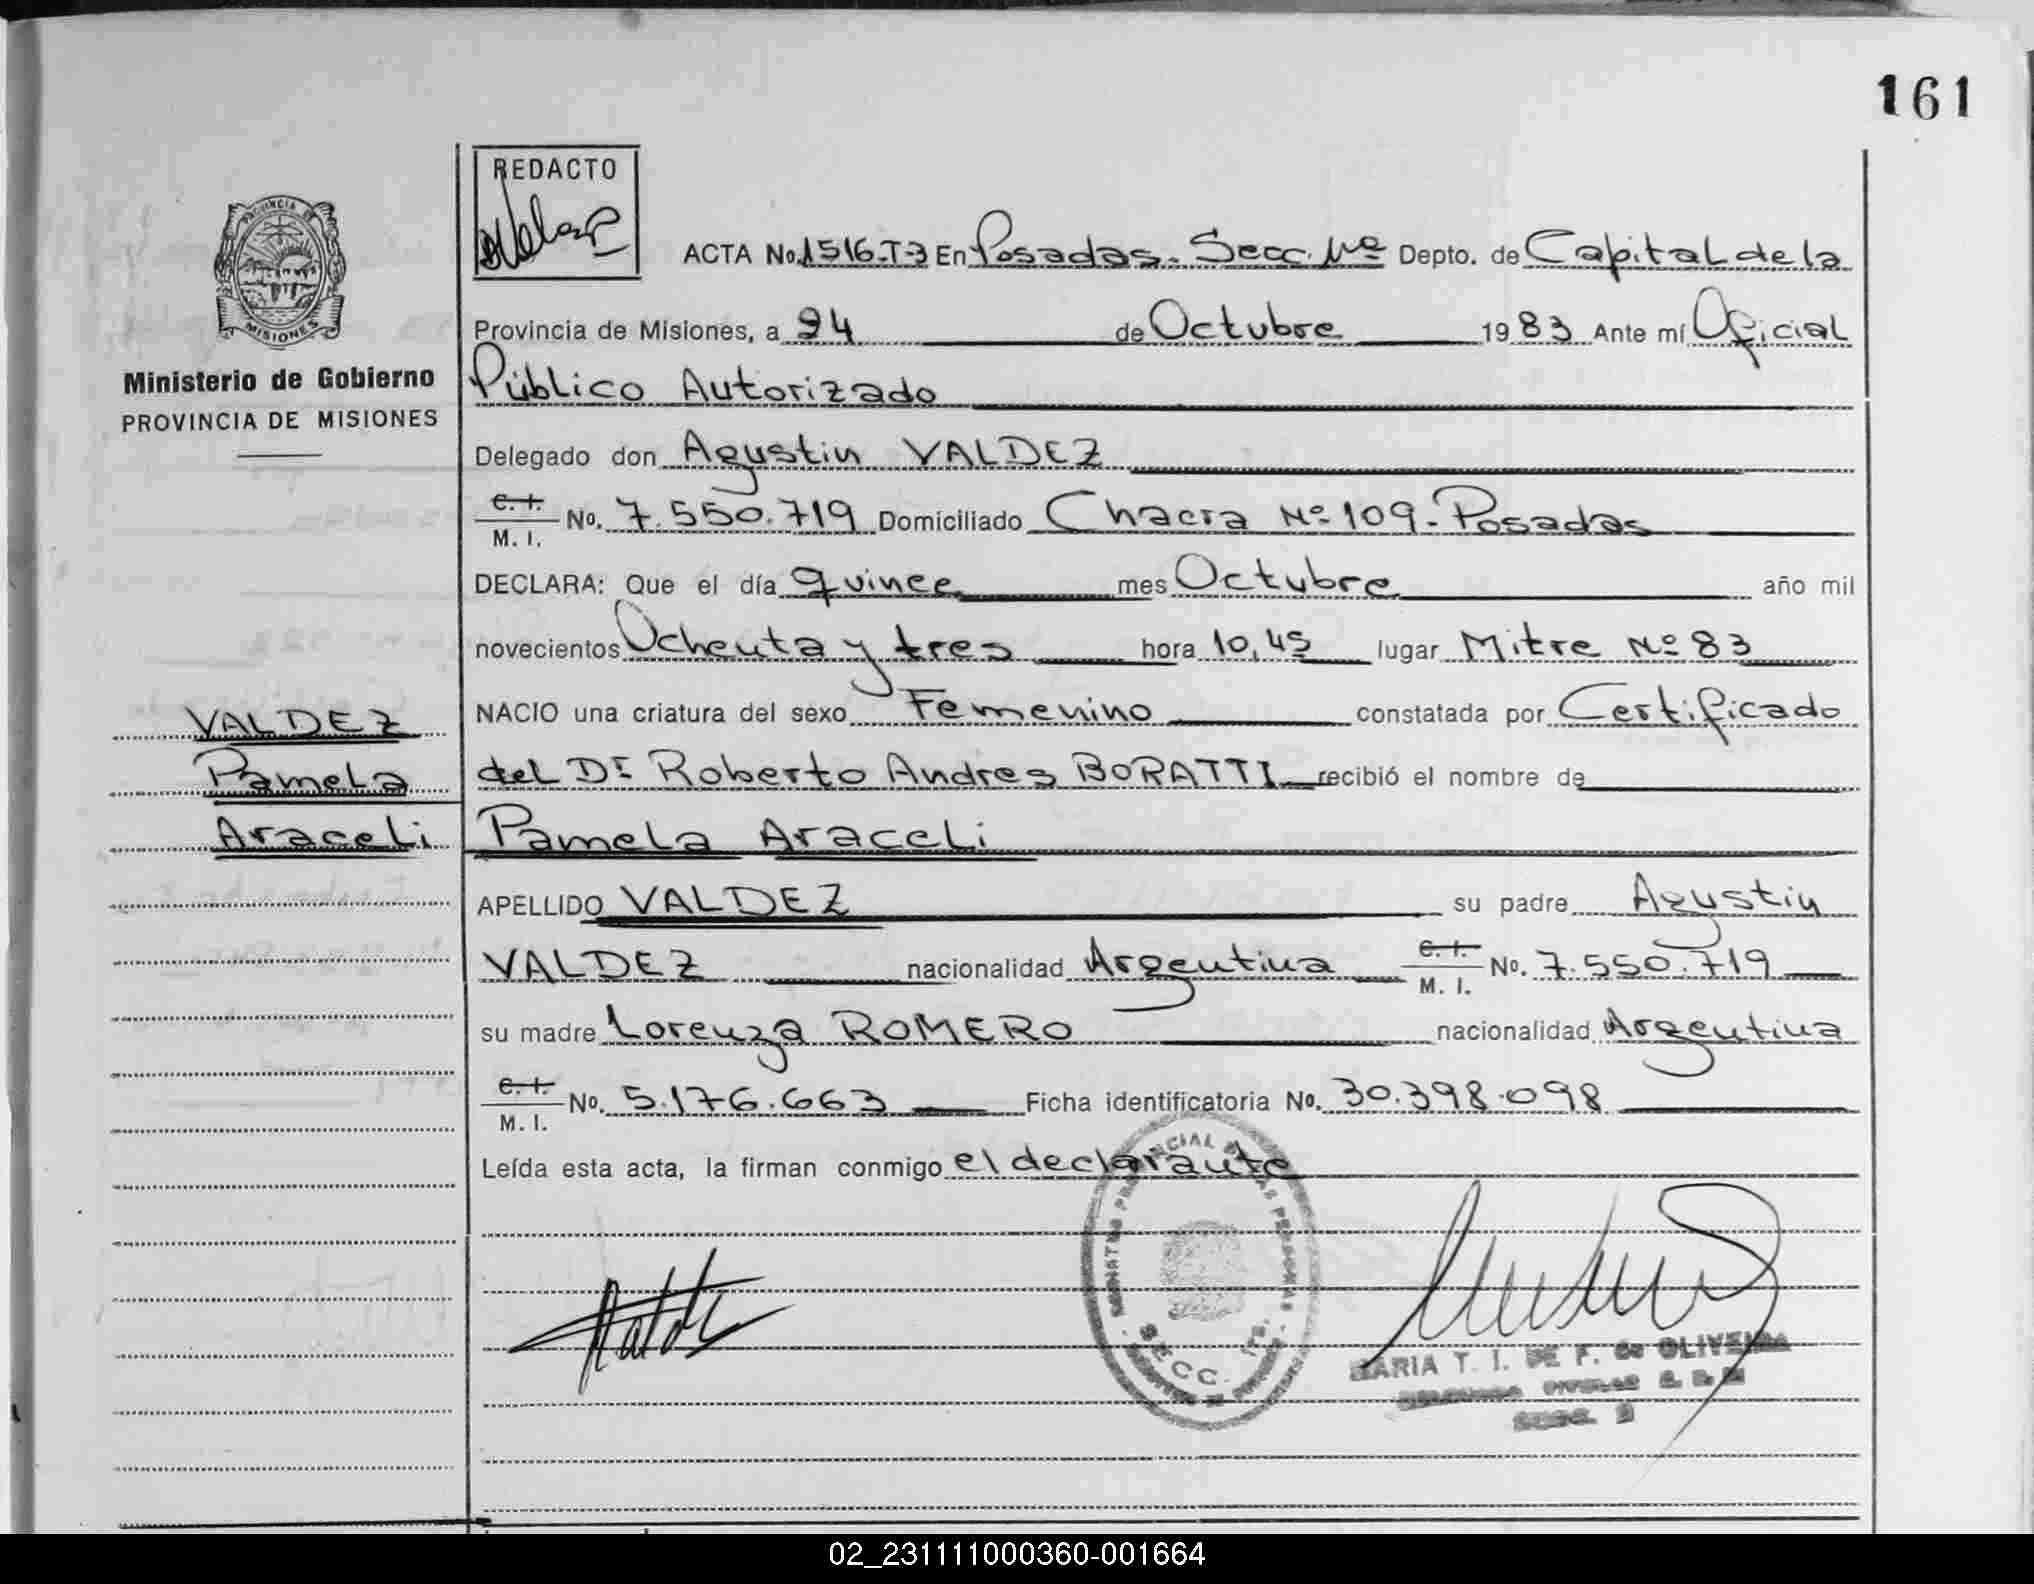 161
REDACTO
PROVINCIA DE
MISIONES
Ministerio de Gobierno
PROVINCIA DE MISIONES
ACTA No. 1516-T-3 En Posadas. Secc. 1ra Depto. de Capital de la
Provincia de Misiones, a 24 de Octubre 1983 Ante mí Oficial
Público Autorizado
Delegado don Agustin VALDEZ
C. I.
M. I. No. 7.550.719 Domiciliado Chacra Nº 109 - Posadas
DECLARA: Que el día quince mes Octubre año mil
novecientos Ochenta y tres hora 10,45 lugar Mitre Nº 83
NACIO una criatura del sexo Femenino constatada por Certificado
del Dr Roberto Andres BORATTI recibió el nombre de
Pamela Araceli
VALDEZ
Pamela
Araceli
APELLIDO VALDEZ su padre Agustin
VALDEZ nacionalidad Argentina C. I.
M. I. No. 7.550.719
su madre Lorenza ROMERO nacionalidad Argentina
C. I.
M. I. No. 5.176.663 Ficha identificatoria No. 30.398.098
Leída esta acta, la firman conmigo el declarante
SECC.
MARIA T. I. DE F. de OLIVEIRA
02_231111000360-001664